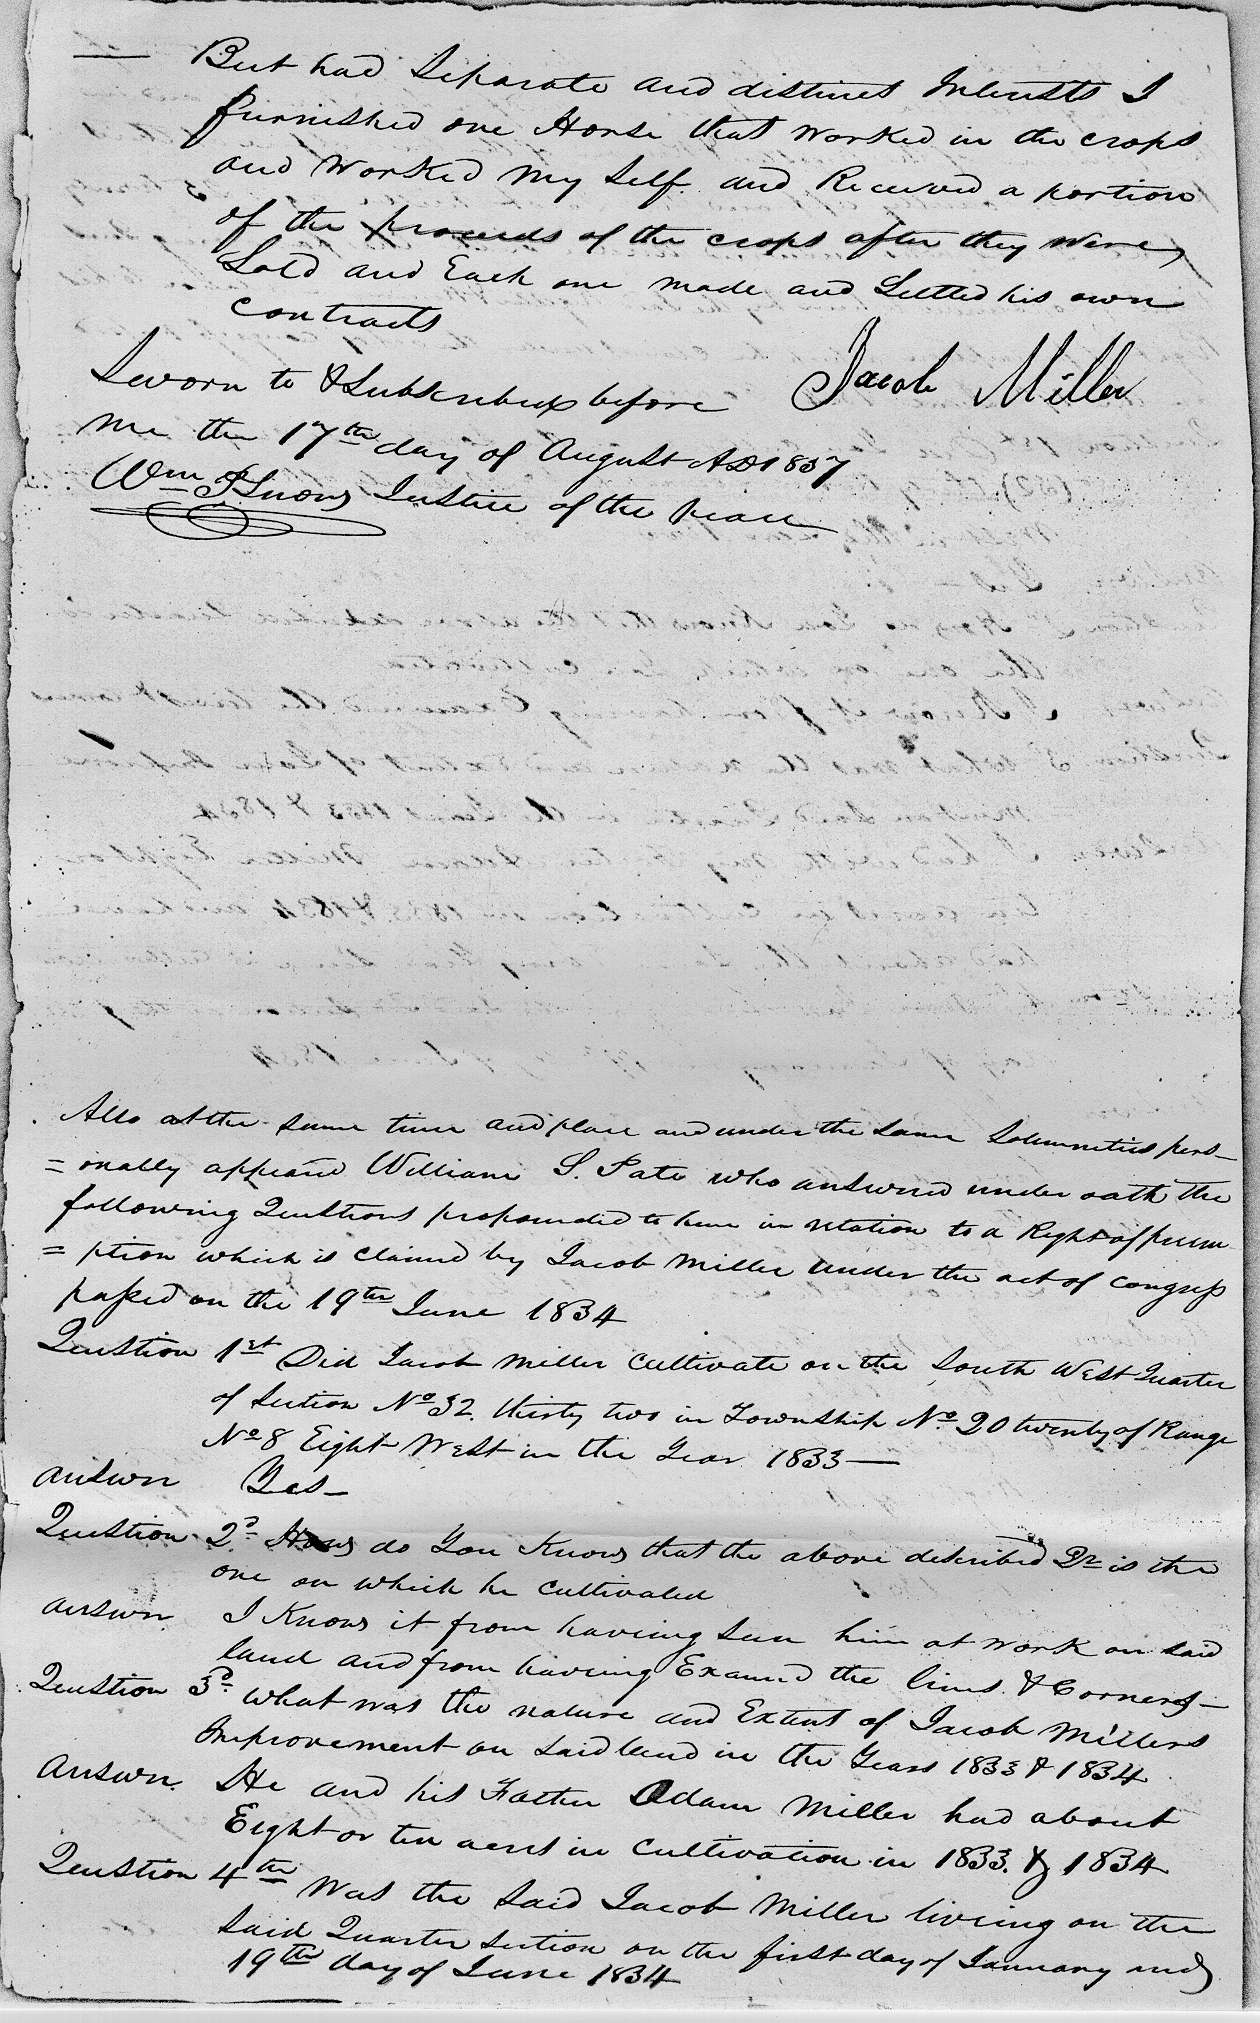 But had Separate and distinct Interests I
furnished one Horse that worked in the crops
and worked my Self and Received a portion
of the proceeds of the crops after they were
Sold and Each one made and Settled his own
contracts
Jacob Miller
Sworn to & Subscribed before
me the 17th day of August AD 1837
Wm Justice of the peace
Also at the same time and place and under the same Solemnities pers-
=onally appeared William S. Pate who answered under oath the
following Questions propounded to him in relation to a Right of preem
=ption which is claimed by Jacob Miller under the act of congress
passed on the 19th June 1834
Question 1st Did Jacob Miller cultivate on the South West Quarter
of Section No 32. thirty two in Township No 20 twenty of Range
No 8 Eight West in the Year 1833—
answer Yes—
Question 2d How do You Know that the above described Qr is the
one on which he cultivated
answer I Know it from having seen him at work on said
land and from having Examd the lines & Corners—
Question 3d What was the nature and Extent of Jacob Millers
Improvement on said land in the Years 1833 & 1834
Answer. He and his Father Adam Miller had about
Eight or ten acres in cultivation in 1833. & 1834
Question 4th Was the said Jacob Miller living on the
said Quarter section on the first day of January and
19th day of June 1834